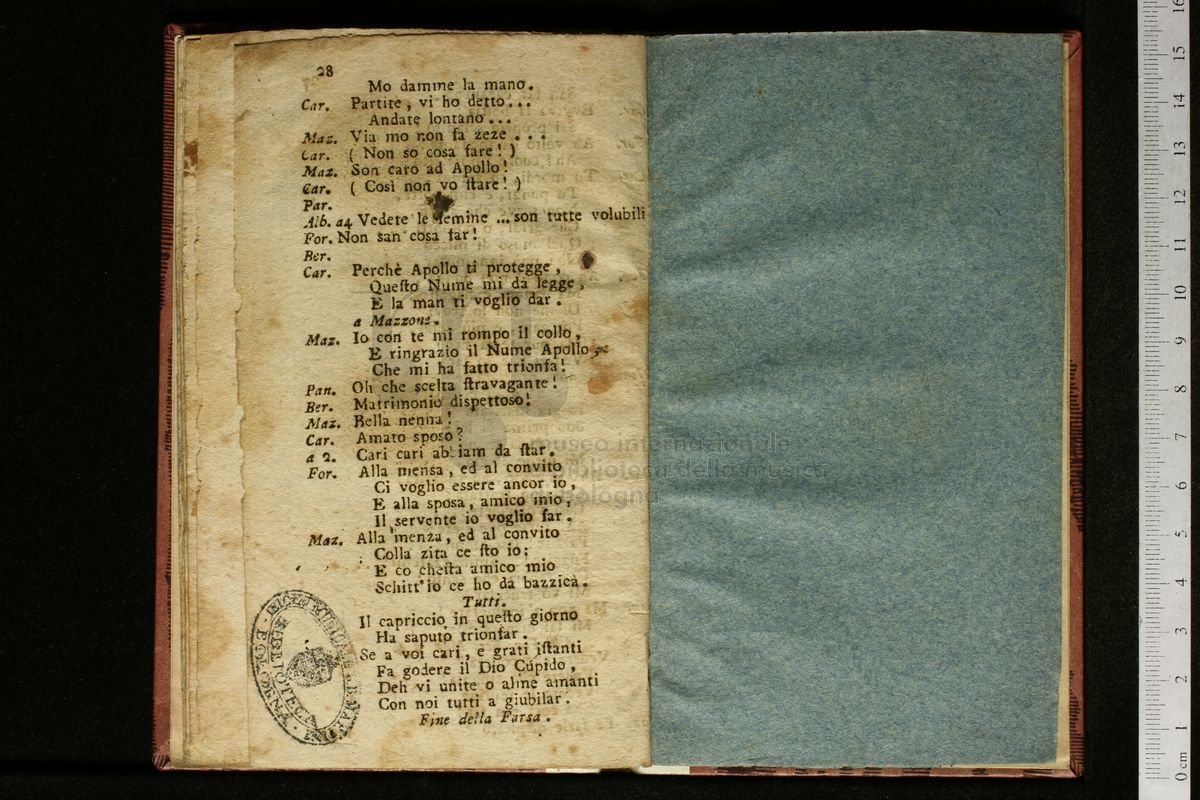 28
Mo damme la mano.
Car. Partite, vi ho detto...
Andate lontano...
Maz. Via mo non fa zeze...
Car. ( Non so cosa fare! )
Maz. Son caro ad Apollo!
Car. ( Così non vo ſtare! )
Par.
Alb. a4 Vedete le femine ... son tutte volubili
For. Non san cosa far!
Ber.
Car. Perchè Apollo ti protegge,
Queſto Nume mi dà legge,
E la man ti voglio dar.
a Mazzone.
Maz. Io con te mi rompo il collo,
E ringrazio il Nume Apollo,
Che mi ha fatto trionfa!
Pan. Oh che scelta ſtravagante!
Ber. Matrimonio dispettoso!
Maz. Bella nenna!
Car. Amato sposo?
a 2. Cari cari abbiam da ſtar.
For. Alla mensa, ed al convito
Ci voglio essere ancor io,
E alla sposa, amico mio,
Il servente io voglio far.
Maz. Alla menza, ed al convito
Colla zita ce ſto io;
E co cheſta amico mio
Schitt'io ce ho da bazzicà.
Tutti.
Il capriccio in queſto giorno
Ha saputo trionfar.
Se a voi cari, e grati iſtanti
Fa godere il Dio Cupido,
Deh vi unite o alme amanti
Con noi tutti a giubilar.
Fine della Farsa.
museo internazionale
biblioteca della musica
bologna
BIBLIOTECA
0 cm 1 2 3 4 5 6 7 8 9 10 11 12 13 14 15 16